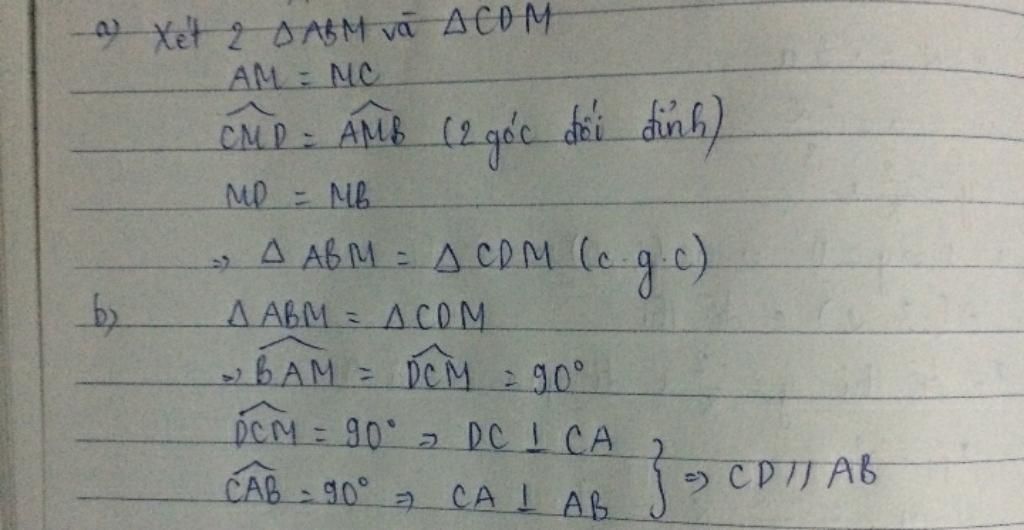 a) Xét 2 ΔABM và ΔCDM
AM = MC
\widehat{CMD} = \widehat{AMB} (2 góc đối đỉnh)
MD = MB
⇒ Δ ABM = Δ CDM (c.g.c)
b) Δ ABM = Δ CDM
⇒ \widehat{BAM} = \widehat{DCM} = 90°
\widehat{DCM} = 90° ⇒ DC ⊥ CA
\widehat{CAB} = 90° ⇒ CA ⊥ AB } ⇒ CD // AB